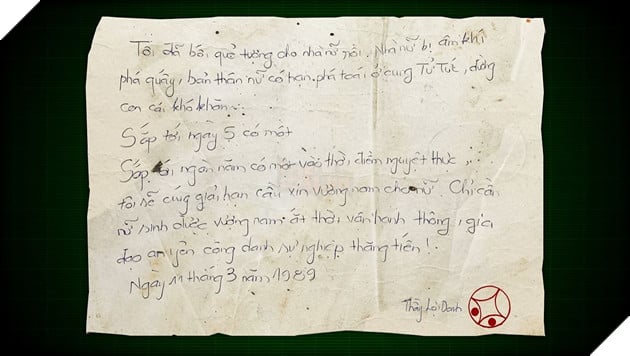 Tôi đã bói quẻ tướng cho nhà nữ rồi. Nhà nữ bị âm khí
phá quấy, bản thân nữ có hạn phá toái ở cung Tử Tức, đường
con cái khó khăn.
Sắp tới ngày 5 có một
Sắp tới ngàn năm có một vào thời điểm nguyệt thực
tôi sẽ cúng giải hạn cầu xin vượng nam cho nữ. Chỉ cần
nữ sinh được vượng nam ắt thời vận hanh thông, gia
đạo an yên công danh sự nghiệp thăng tiến!
Ngày 11 tháng 3 năm 1989
Thầy Lôi Danh